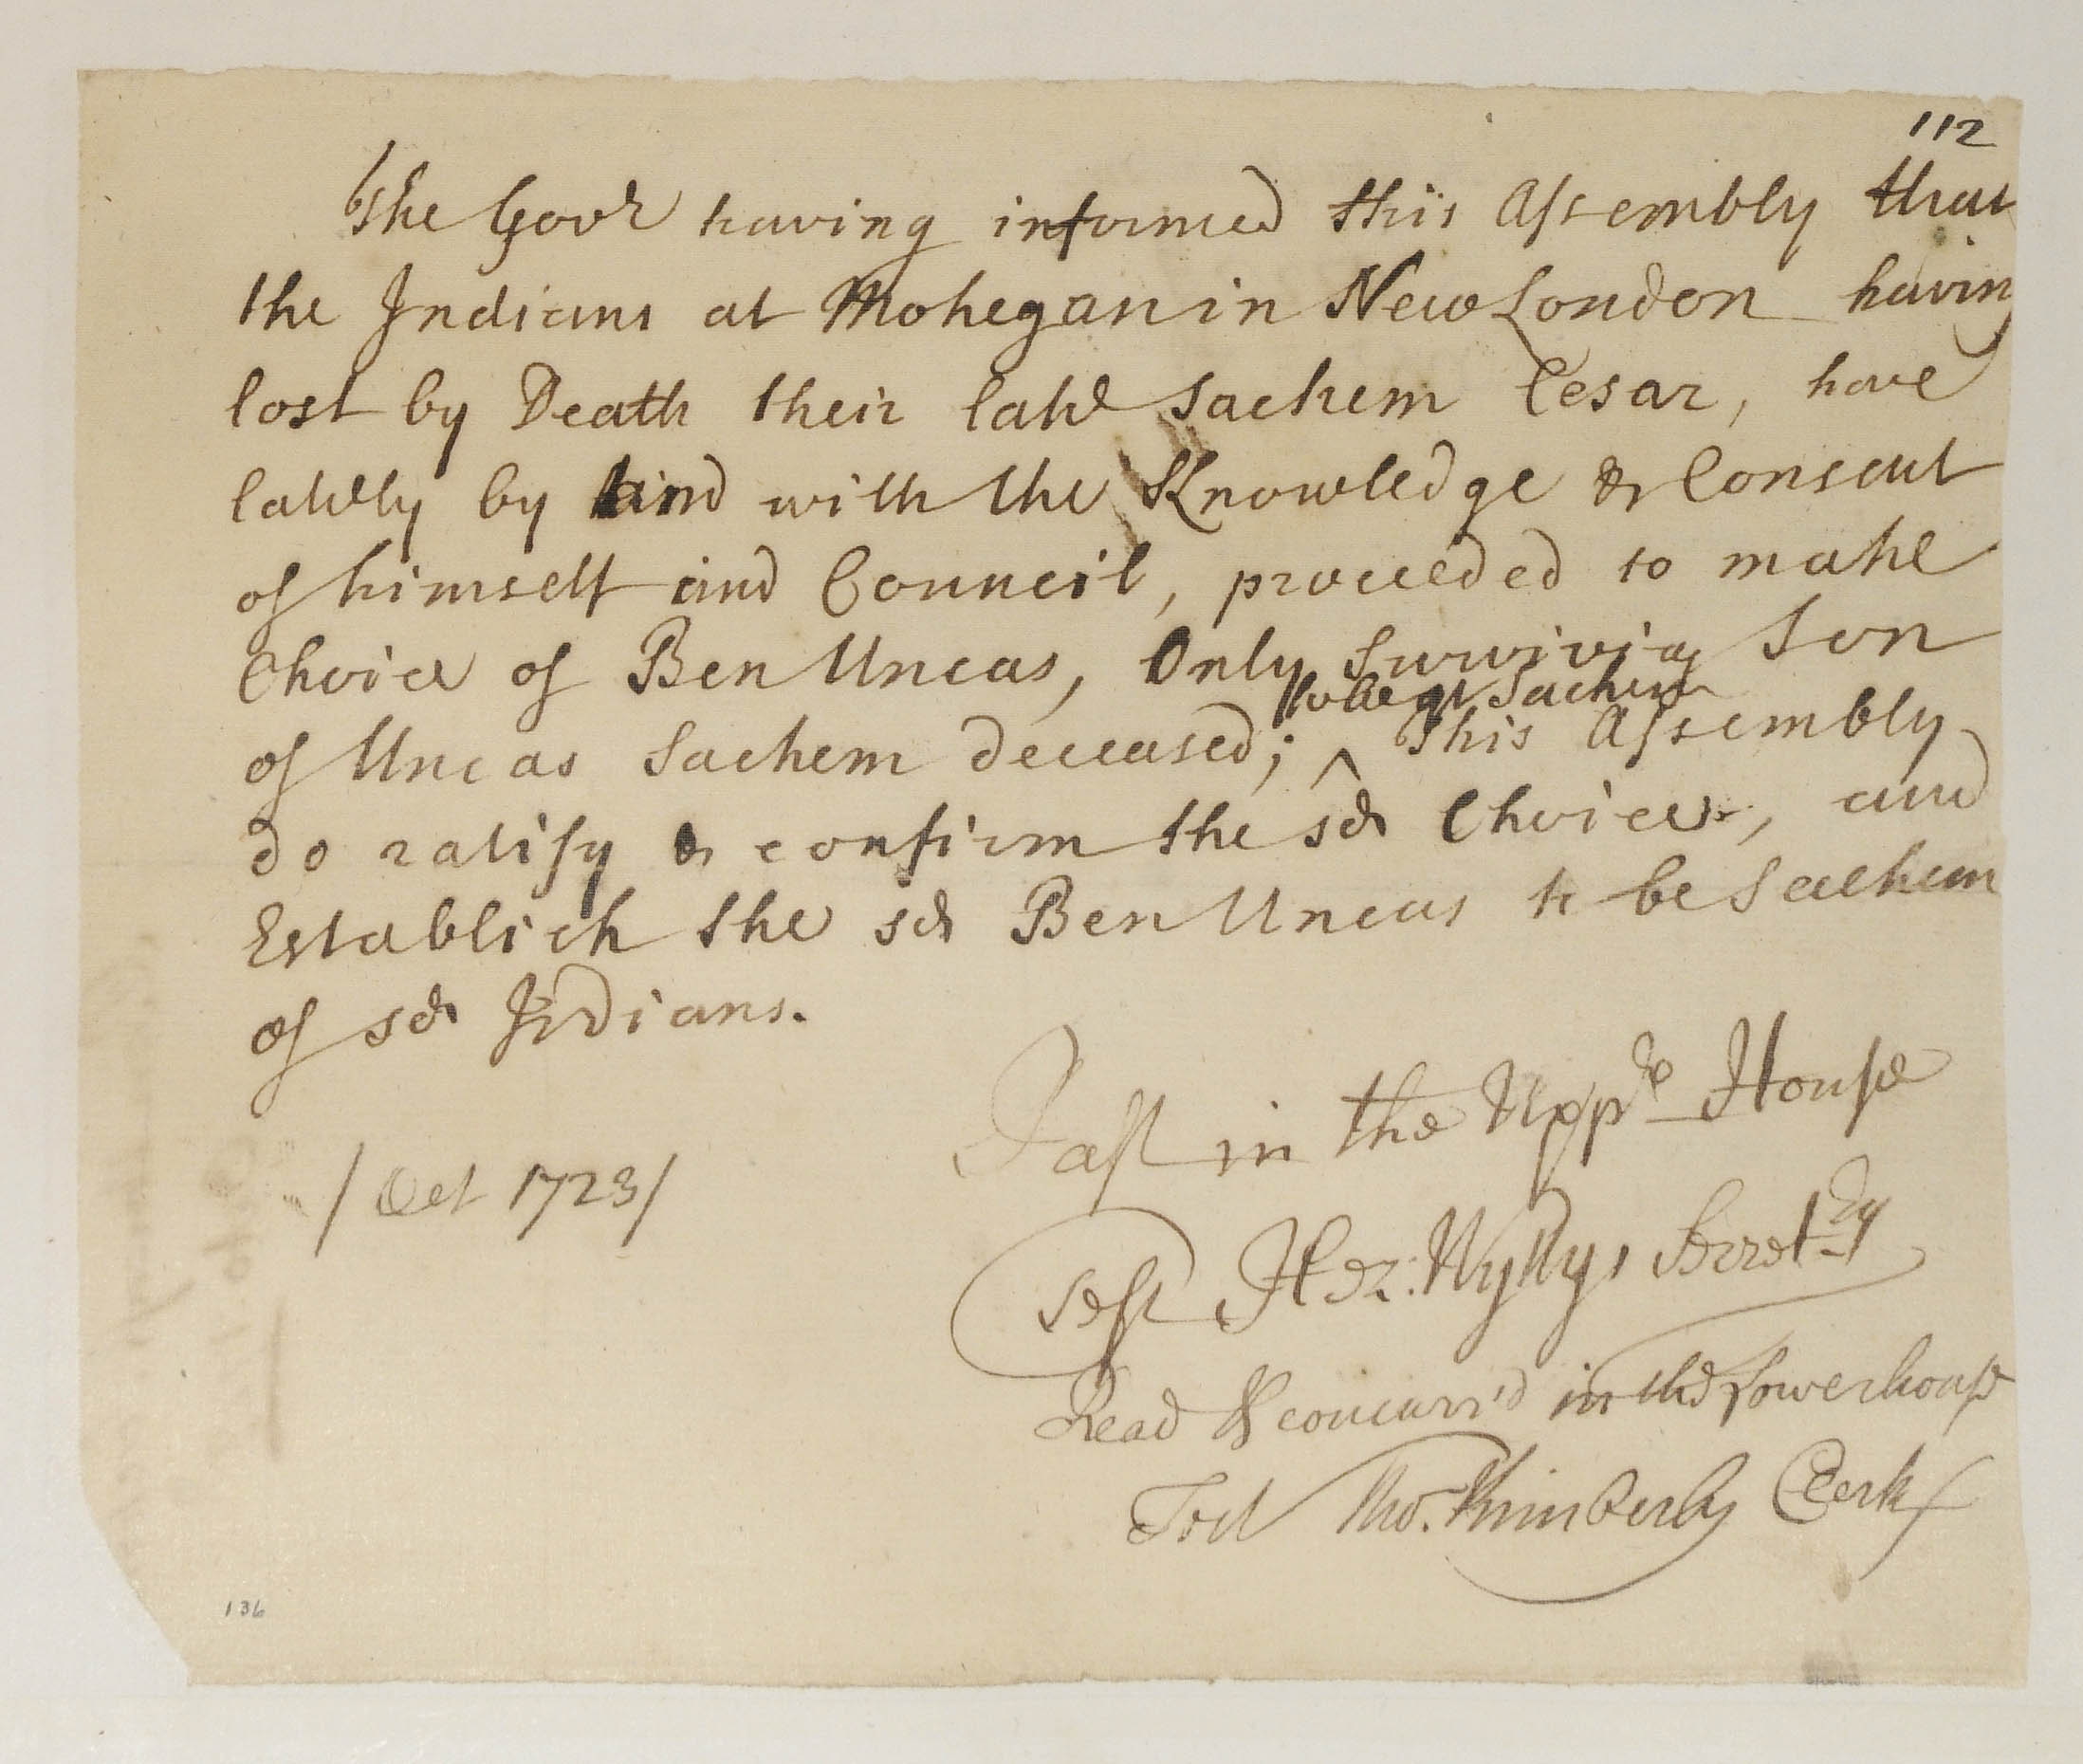 112
The Govr having informed this Assembly that
the Indians at Mohegan in New London having
lost by Death their late Sachem Cesar, have
lately by and with the Knowledge & Consent
of himself and Council, proceeded to make
Choice of Ben Uncas, Only Surviving Son
of Uncas Sachem deceased; ^ to be yr Sachem This Assembly
do ratify & confirm the sd Choice, and
Establish the sd Ben Uncas to be Sachem
of sd Indians.
Past in the Uppr House
/Oct 1723/
Test Hez: Wyllys Secretry
Read & concurr'd in the Lower house
Test Tho. Kimberly Clerk
136